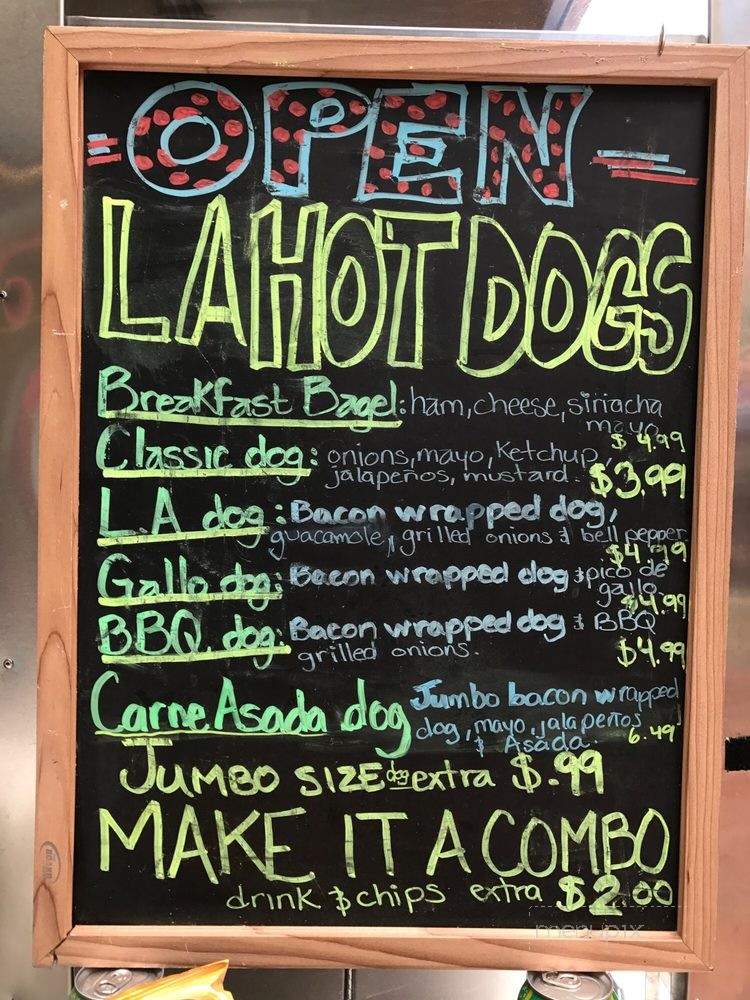 OPEN
LA HOT DOGS
Breakfast Bagel: ham, cheese, sirracha
mayo
$4.99
Classic dog: onions, mayo, Ketchup,
jalapeños, mustard. $3.99
LA dog: Bacon wrapped dog,
guacamole, grilled onions & bell pepper
$4.99
Gallo dog: Bacon wrapped dog & pico de
gallo.
$4.99
BBQ dog: Bacon wrapped dog & BBQ
grilled onions. $4.99
Carne Asada dog Jumbo bacon wrapped
dog, mayo, jalapeños
& Asada. 6.49
JUMBO SIZE dog extra $.99
MAKE IT A COMBO
drink & chips extra $2.00
menupix